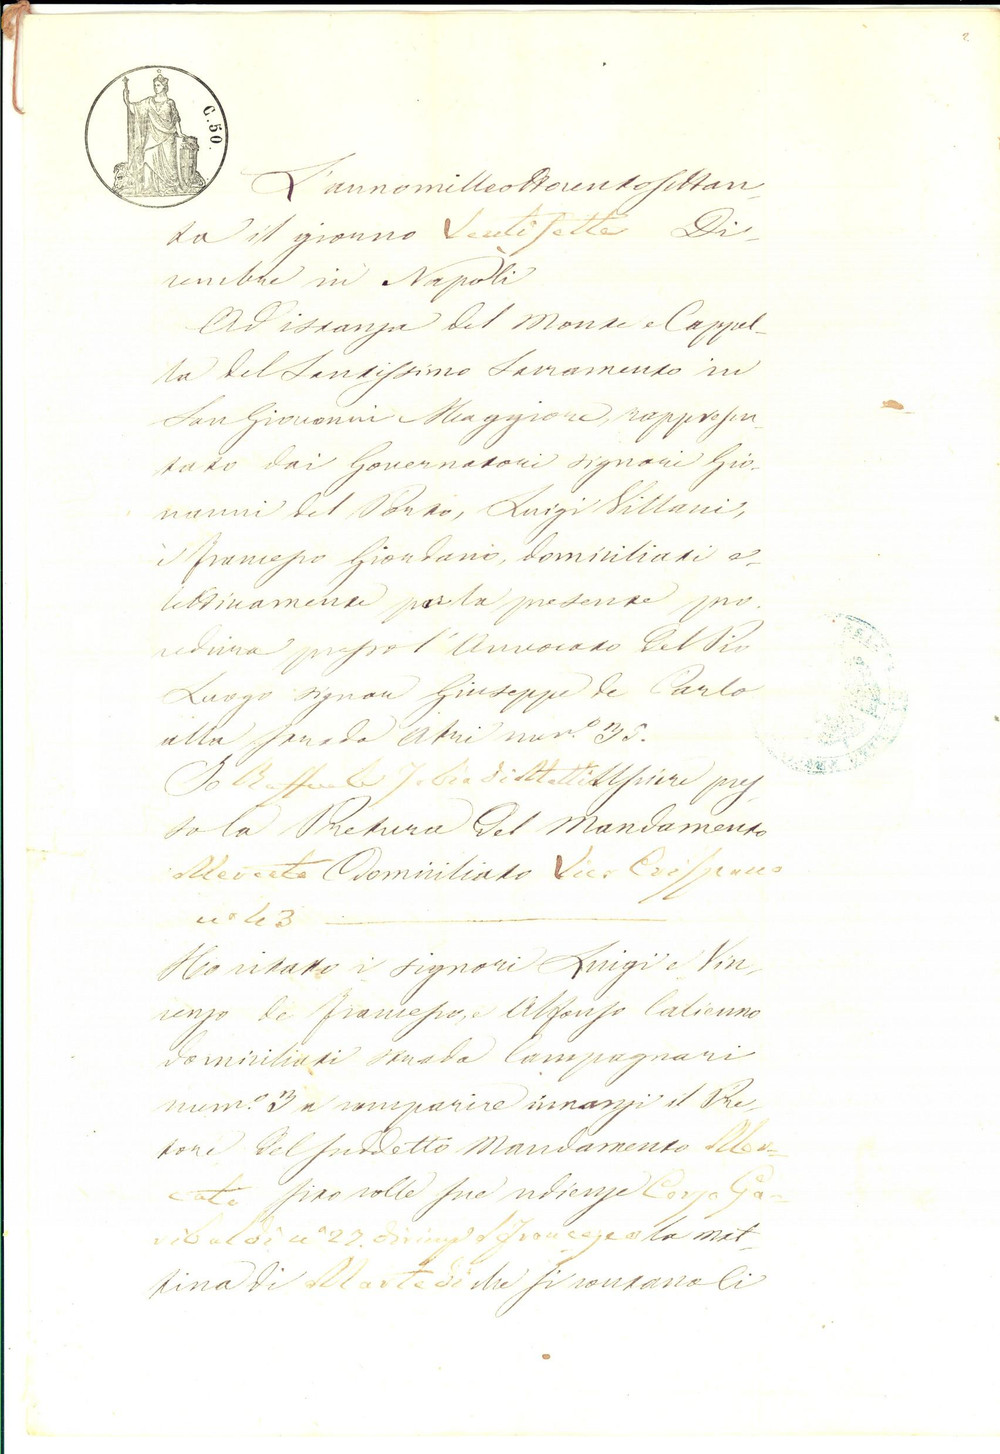 2
C. 50.
L'annomilleottocentosettan-
ta il giorno Ventisette Di-
cembre in Napoli
Ad istanza del Monte e Cappel-
la del Santissimo Sacramento in
San Giovanni Maggiore, rappresen-
tato dai Governatori signori Gio-
vanni del Porto, Luigi Villani,
e Francesco Giordano, domiciliati e-
lettivamente per la presente pro-
cedura presso l'Avvocato del Pio
Luogo signor Giuseppe de Carlo
alla strada Atri num.º 35.
Io Raffaele di Usciere pres-
so la Pretura del Mandamento
Mercato domiciliato Vico Crispano
nº 43
Ho citato i signori Luigi e Vin-
cenzo de Francesco, e Alfonso Catienno
domiciliati strada Campagnari
num.º 3 a comparire innanzi il Pre-
tore del suddetto Mandamento Mer-
cato sito colle sue udienze Corso Ga-
ribaldi nº 27. la mat-
tina di Martedi che si contano li